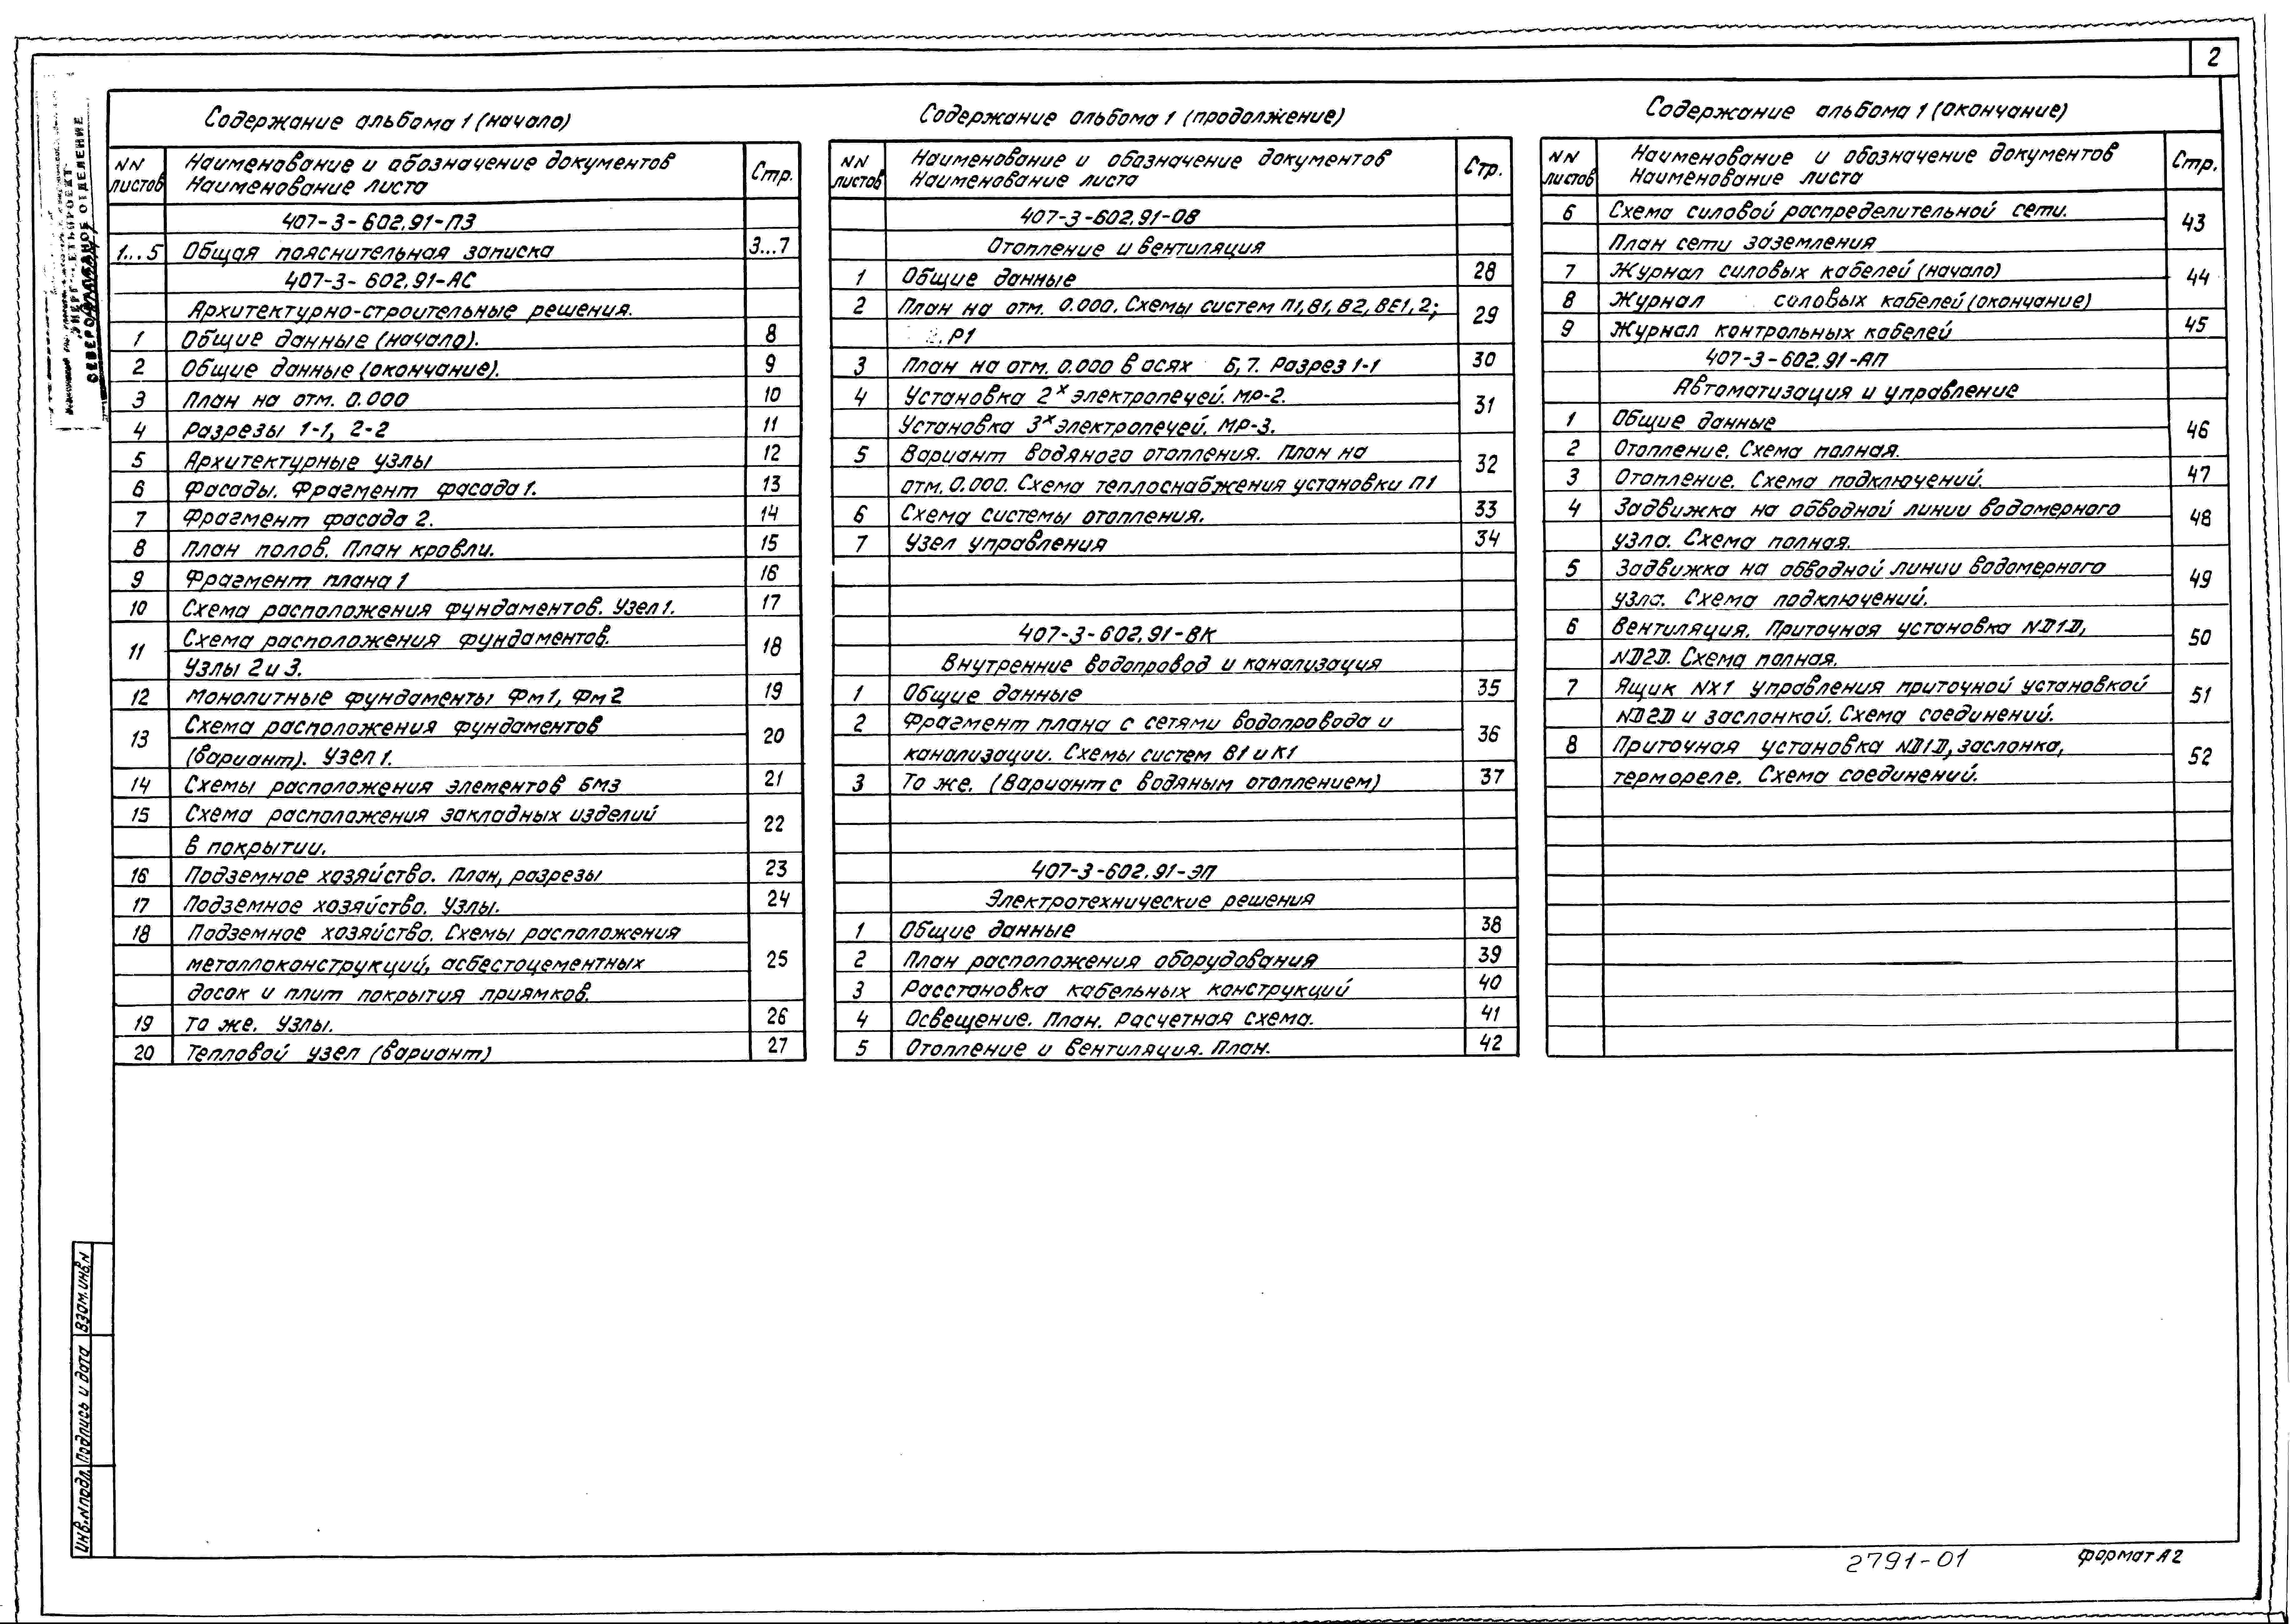 2
Содержание альбома 1 (начало)
NN листов
Наименование и обозначение документов
Наименование листа
Стр.
407-3-602.91-ПЗ
1...5 Общая пояснительная записка 3...7
407-3-602.91-АС
Архитектурно-строительные решения.
1 Общие данные (начало). 8
2 Общие данные (окончание). 9
3 План на отм. 0.000 10
4 Разрезы 1-1, 2-2 11
5 Архитектурные узлы 12
6 Фасады. Фрагмент фасада 1. 13
7 Фрагмент фасада 2. 14
8 План полов. План кровли. 15
9 Фрагмент плана 1 16
10 Схема расположения фундаментов. Узел 1. 17
11 Схема расположения фундаментов. 18
Узлы 2 и 3.
12 Монолитные фундаменты Фм1, Фм2 19
13 Схема расположения фундаментов 20
(вариант). Узел 1.
14 Схемы расположения элементов БМЗ 21
15 Схема расположения закладных изделий 22
в покрытии.
16 Подземное хозяйство. План, разрезы 23
17 Подземное хозяйство. Узлы. 24
18 Подземное хозяйство. Схемы расположения
металлоконструкций, асбестоцементных 25
досок и плит покрытия приямков.
19 То же. Узлы. 26
20 Тепловой узел (вариант) 27
Содержание альбома 1 (продолжение)
NN листов
Наименование и обозначение документов
Наименование листа
Стр.
407-3-602.91-ОВ
Отопление и вентиляция
1 Общие данные 28
2 План на отм. 0.000. Схемы систем П1, В1, В2, ВЕ1, 2; 29
Р1
3 План на отм. 0.000 в осях Б, 7. Разрез 1-1 30
4 Установка 2х электропечей. МР-2. 31
Установка 3х электропечей. МР-3.
5 Вариант водяного отопления. План на 32
отм. 0.000. Схема теплоснабжения установки П1
6 Схема системы отопления. 33
7 Узел управления 34
407-3-602.91-ВК
Внутренние водопровод и канализация
1 Общие данные 35
2 Фрагмент плана с сетями водопровода и 36
канализации. Схемы систем В1 и К1
3 То же. (Вариант с водяным отоплением) 37
407-3-602.91-ЭП
Электротехнические решения
1 Общие данные 38
2 План расположения оборудования 39
3 Расстановка кабельных конструкций 40
4 Освещение. План. Расчетная схема. 41
5 Отопление и вентиляция. План. 42
Содержание альбома 1 (окончание)
NN листов
Наименование и обозначение документов
Наименование листа
Стр.
6 Схема силовой распределительной сети. 43
План сети заземления
7 Журнал силовых кабелей (начало) 44
8 Журнал силовых кабелей (окончание)
9 Журнал контрольных кабелей 45
407-3-602.91-АП
Автоматизация и управление
1 Общие данные 46
2 Отопление. Схема полная.
3 Отопление. Схема подключений. 47
4 Задвижка на обводной линии водомерного 48
узла. Схема полная.
5 Задвижка на обводной линии водомерного 49
узла. Схема подключений.
6 Вентиляция. Приточная установка ND1D, 50
ND2D. Схема полная.
7 Ящик NX1 управления приточной установкой 51
ND2D и заслонкой. Схема соединений.
8 Приточная установка ND1D, заслонка, 52
термореле. Схема соединений.
ОТДЕЛЕНИЕ
Инв. N подл. Подпись и дата Взам. инв. N
2791-01
Формат А2